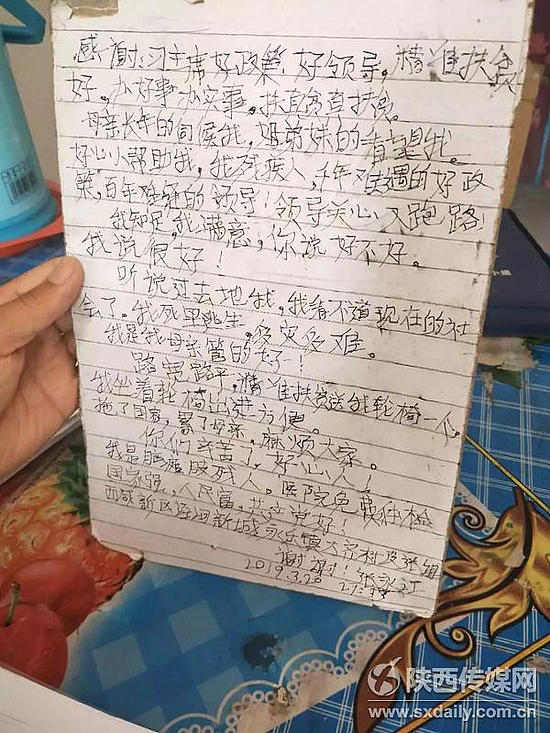 感谢习主席好政策,好领导,精准扶贫
好。办好事办实事,扶真贫真扶贫。
母亲长年的伺候我,兄弟妹的看望我。
好心小帮助我,我残疾人,千年难遇的好政
策,百年难逢的领导!领导关心入跑路!
我知足,我满意,你说好不好。
我说很好!
听说过去地我,我看不道现在的社
会了。我死里逃生,多灾多难。
我是我母亲管的好!
路宽路平,精准扶贫送我轮椅一个。
我坐着轮椅出进方便。
拖了国家,累了母亲,麻烦大家。
你们辛苦了,好心人!
我是脑瘫肢残人。医院免费体检
国家强,人民富,共产党好!
西咸新区泾河新城永乐镇
谢谢!
2019.3.20
陕西传媒网
www.sxdaily.com.cn